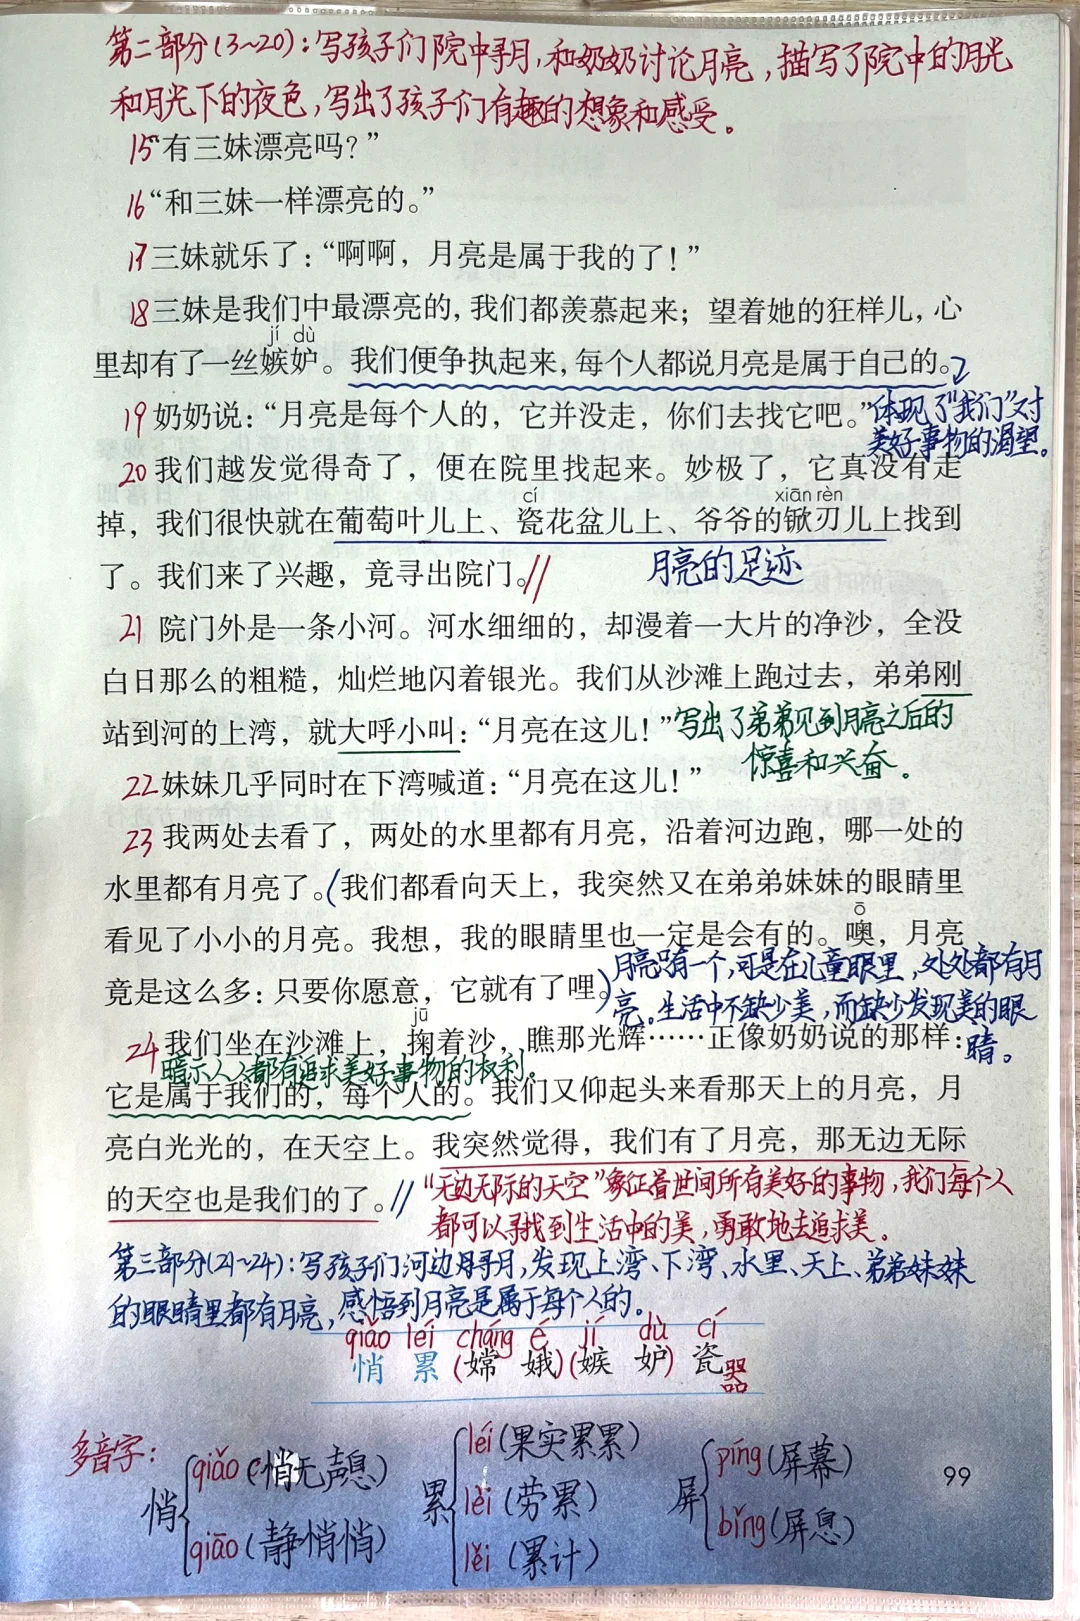 第二部分(3~20):写孩子们院中寻月,和奶奶讨论月亮,描写了院中的月光
和月光下的夜色,写出了孩子们有趣的想象和感受。
15“有三妹漂亮吗？”
16“和三妹一样漂亮的。”
17三妹就乐了：“啊啊，月亮是属于我的了！”
18三妹是我们中最漂亮的，我们都羡慕起来；望着她的狂样儿，心
jí dù
里却有了一丝嫉妒。我们便争执起来，每个人都说月亮是属于自己的。
19奶奶说：“月亮是每个人的，它并没走，你们去找它吧。”
体现了“我们”对
美好事物的渴望。
20我们越发觉得奇了，便在院里找起来。妙极了，它真没有走
cí xiān rèn
掉，我们很快就在葡萄叶儿上、瓷花盆儿上、爷爷的锨刃儿上找到
了。我们来了兴趣，竟寻出院门。//
月亮的足迹
21院门外是一条小河。河水细细的，却漫着一大片的净沙，全没
白日那么的粗糙，灿烂地闪着银光。我们从沙滩上跑过去，弟弟刚
站到河的上湾，就大呼小叫：“月亮在这儿！”
写出了弟弟见到月亮之后的
惊喜和兴奋。
22妹妹几乎同时在下湾喊道：“月亮在这儿！”
23我两处去看了，两处的水里都有月亮，沿着河边跑，哪一处的
水里都有月亮了。(我们都看向天上，我突然又在弟弟妹妹的眼睛里
ō
看见了小小的月亮。我想，我的眼睛里也一定是会有的。噢，月亮
竟是这么多：只要你愿意，它就有了哩。)
月亮只有一个,可是在儿童眼里,处处都有月
亮。生活中不缺少美,而缺少发现美的眼
睛。
jū
24我们坐在沙滩上，掬着沙，瞧那光辉……正像奶奶说的那样：
暗示人人都有追求美好事物的权利。
它是属于我们的，每个人的。我们又仰起头来看那天上的月亮，月
亮白光光的，在天空上。我突然觉得，我们有了月亮，那无边无际
的天空也是我们的了。//
“无边无际的天空”象征着世间所有美好的事物,我们每个人
都可以寻找到生活中的美,勇敢地去追求美。
第三部分(21~24):写孩子们河边寻月,发现上湾、下湾、水里、天上、弟弟妹妹
的眼睛里都有月亮,感悟到月亮是属于每个人的。
qiǎo léi cháng é jí dù cí
悄 累 (嫦 娥)(嫉 妒) 瓷器
多音字:
悄 qiǎo(悄无声息)
qiāo(静悄悄)
累 léi(果实累累)
lèi(劳累)
lěi(累计)
屏 píng(屏幕)
bǐng(屏息)
99